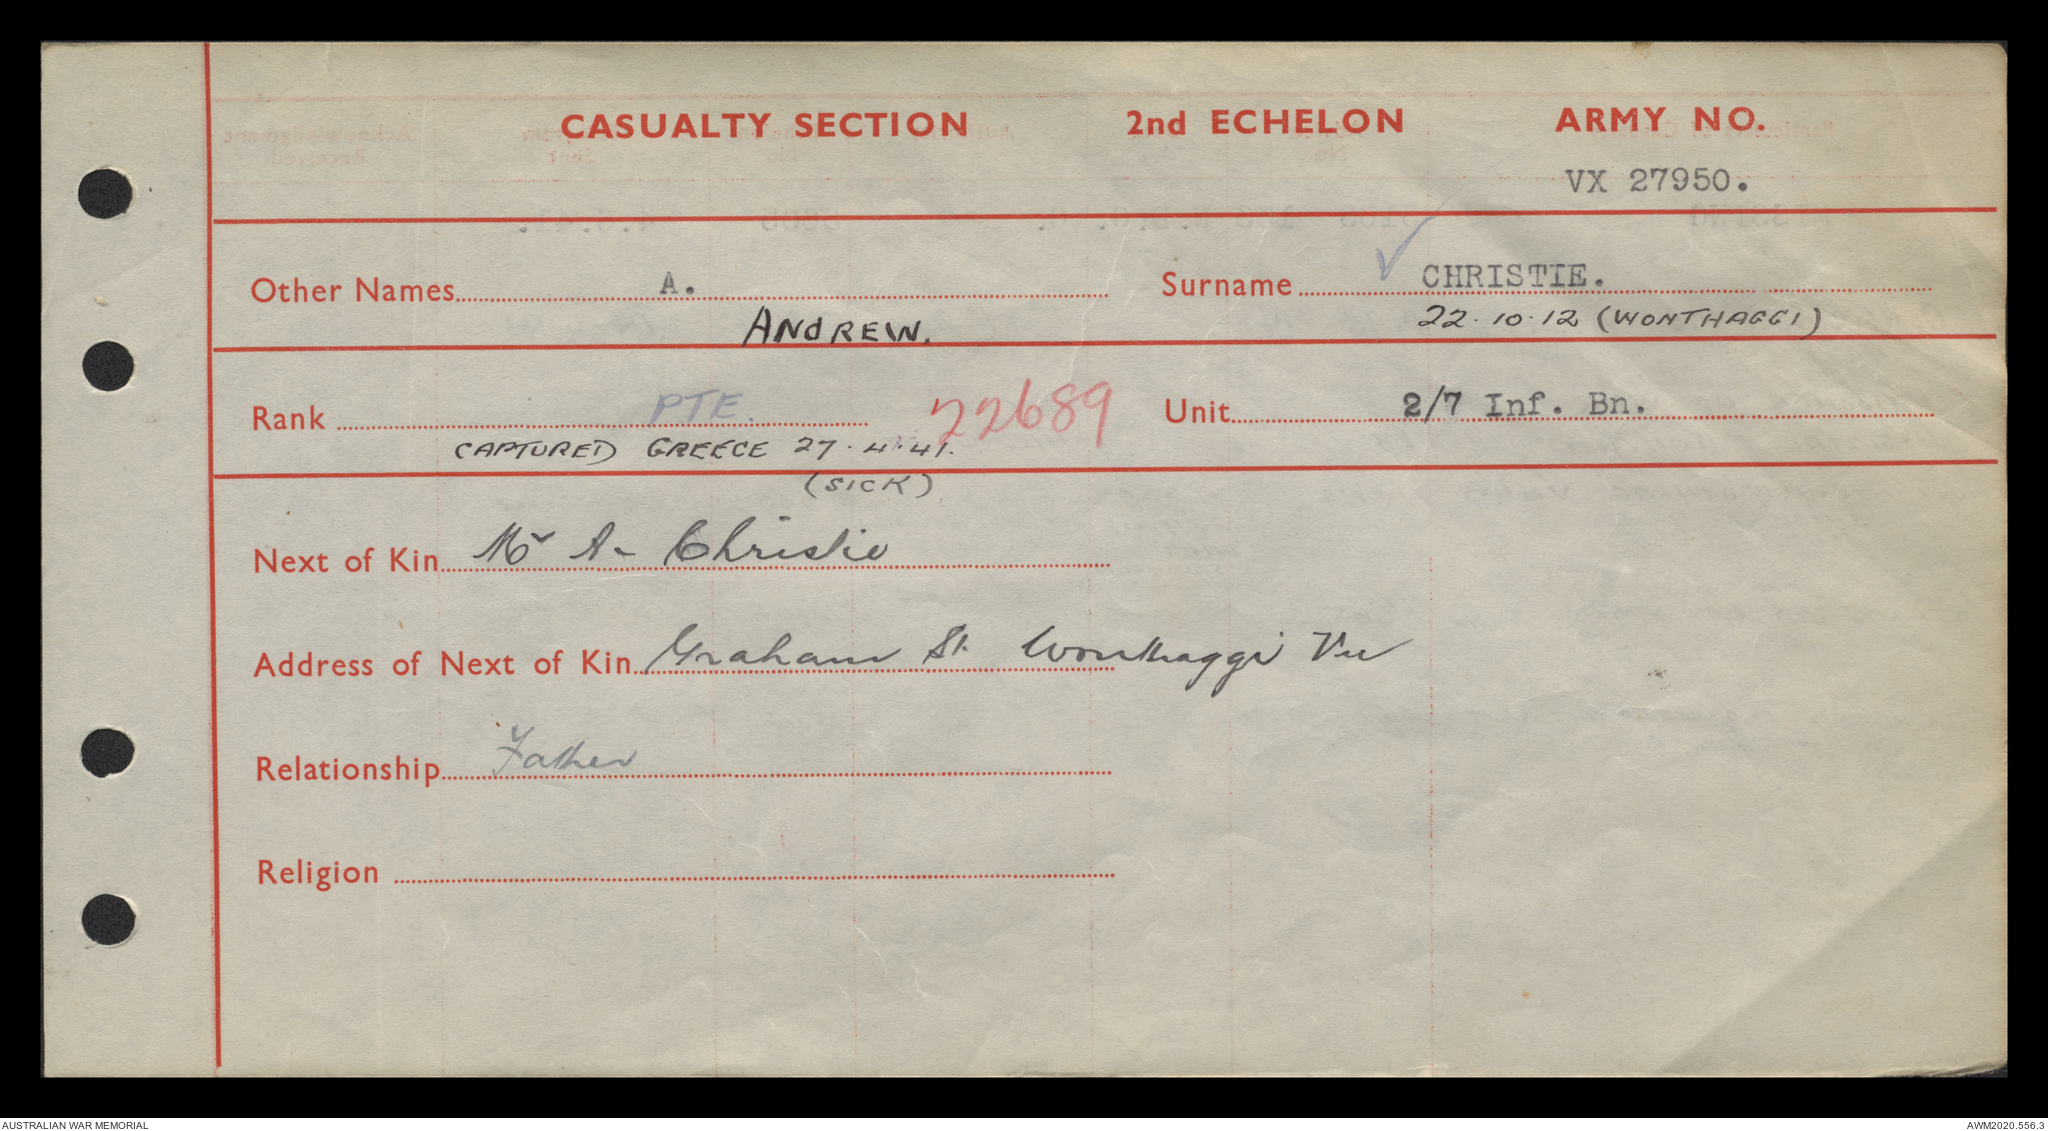 CASUALTY SECTION 2nd ECHELON ARMY NO.
VX 27950.
Other Names A. Surname CHRISTIE.
ANDREW. 22.10.12 (WONTHAGGI)
Rank PTE. 22689 Unit 2/7 Inf. Bn.
CAPTURED GREECE 27.4.41.
(SICK)
Next of Kin Mr A. Christie
Address of Next of Kin Graham St. Wonthaggi Vic
Relationship Father
Religion
AUSTRALIAN WAR MEMORIAL AWM2020.556.3